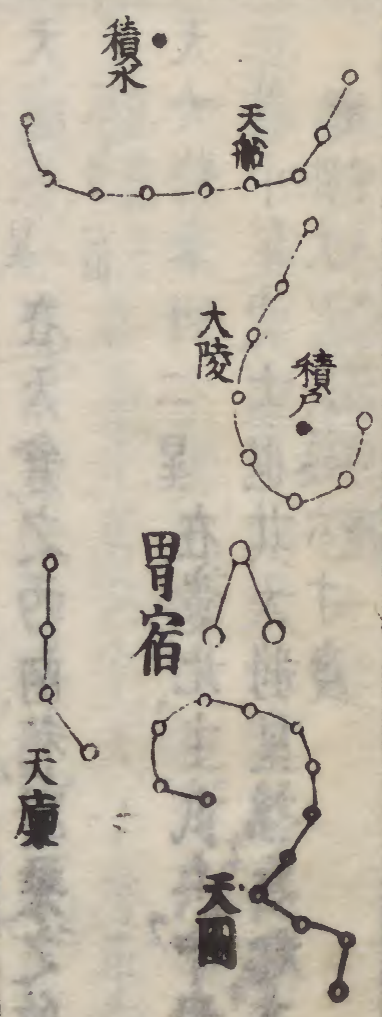 積水
天船
大陵
積尸
胃宿
天廩
天囷